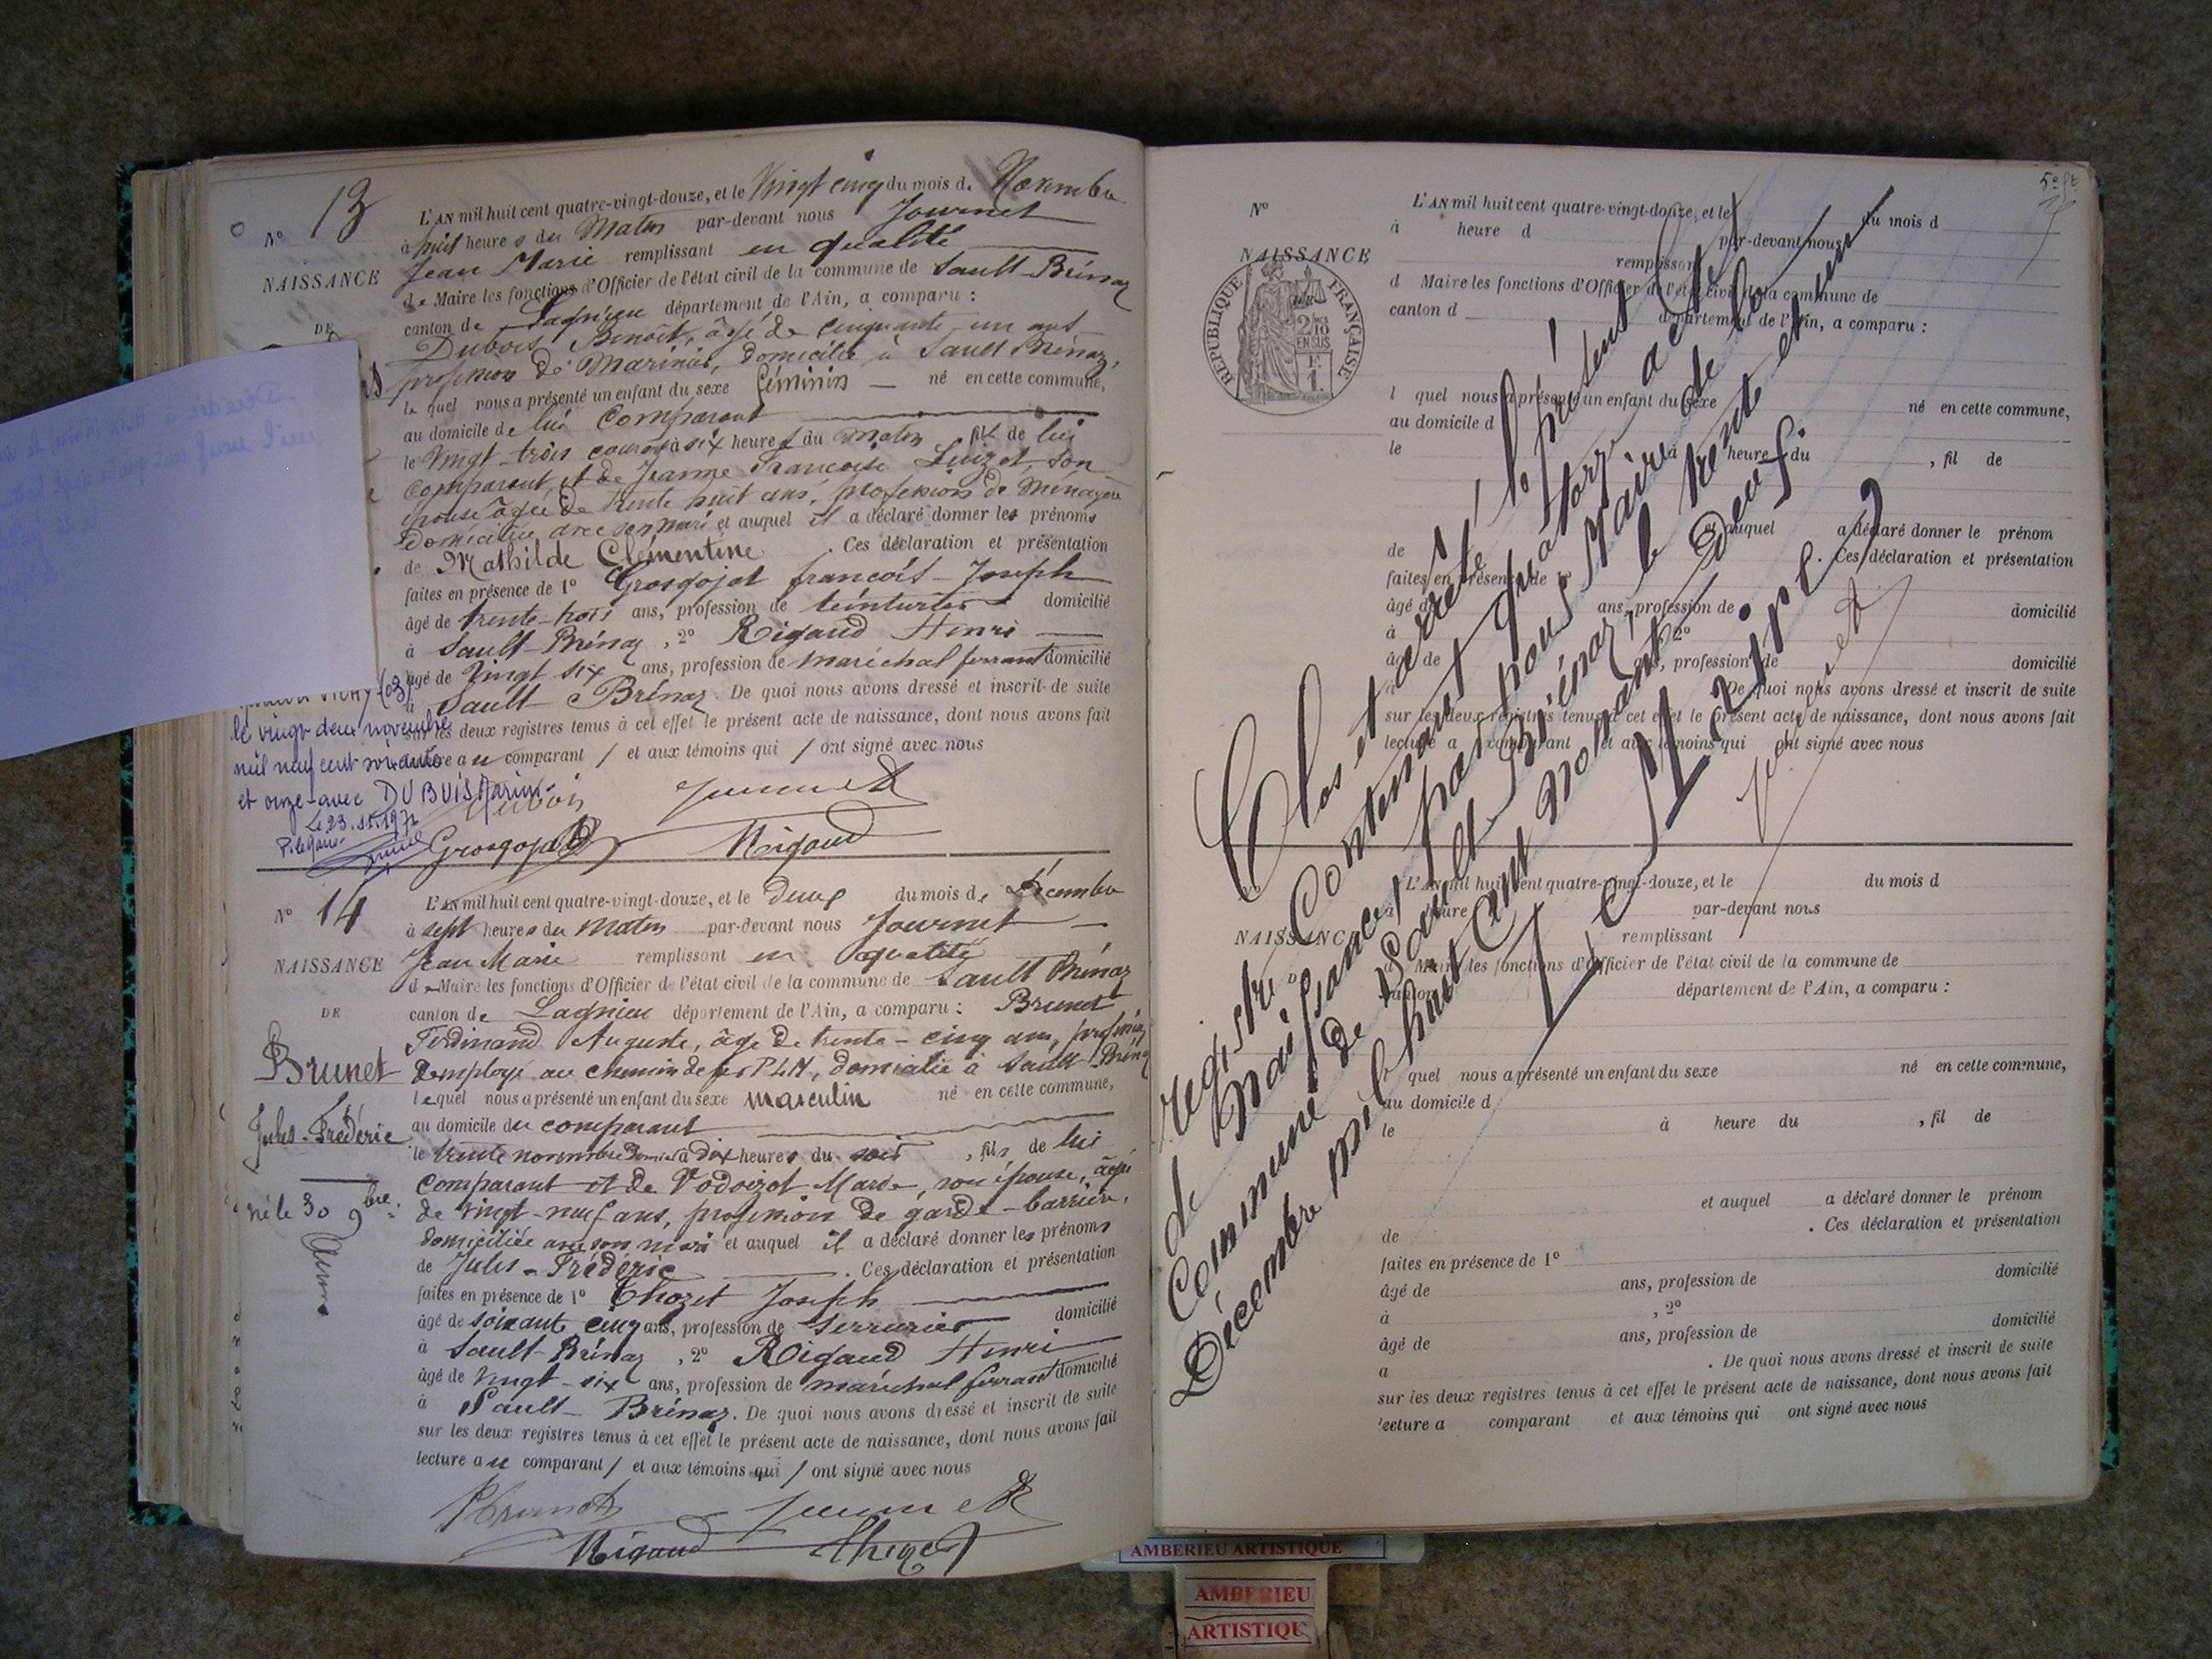 N° 13
L'AN mil huit cent quatre-vingt-douze, et le Vingt cinq du mois de Novembre
à huit heures du Matin par-devant nous Journet
NAISSANCE
Jean Marie remplissant en qualité
de Maire les fonctions d'Officier de l'état civil de la commune de Sault-Brénaz
DE
canton de Lagnieu département de l'Ain, a comparu :
Dubois Benoît, âgé de cinquante-un ans
profession de Marinier, domicilié à Sault Brénaz,
lequel nous a présenté un enfant du sexe féminin né en cette commune,
au domicile de lui Comparant
le Vingt-trois courant à six heures du matin fille de lui
comparant, et de Jeanne Françoise Luizet, son
épouse âgée de trente huit ans, profession de Ménagère
domiciliée avec son mari et auquel il a déclaré donner les prénoms
de Mathilde Clémentine . Ces déclaration et présentation
faites en présence de 1° Grosgojat françois-Joseph
âgé de trente-trois ans, profession de teinturier domicilié
à Sault-Brénaz , 2° Rigaud Henri
âgé de Vingt six ans, profession de maréchal ferrant domicilié
à Sault-Brénaz. De quoi nous avons dressé et inscrit de suite
sur les deux registres tenus à cet effet le présent acte de naissance, dont nous avons fait
lecture au comparant / et aux témoins qui / ont signé avec nous
VICHY (03)
le vingt deux novembre
mil neuf cent soixante
et onze avec DUBUIS Marius
Le 23.11.1971
Dubois Journet
Grosgojat Rigaud
N° 14
L'AN mil huit cent quatre-vingt-douze, et le deux du mois de Décembre
à sept heures du Matin par-devant nous Journet
NAISSANCE
Jean Marie remplissant en qualité
de Maire les fonctions d'Officier de l'état civil de la commune de Sault Brénaz
DE
canton de Lagnieu département de l'Ain, a comparu : Brunet
Ferdinand Auguste, âgé de trente-cinq ans, profession
Brunet
d'employé au chemin de fer PLM, domicilié à Sault Brénaz
lequel nous a présenté un enfant du sexe masculin né en cette commune,
Jules-Frédéric
au domicile du comparant
le trente novembre dernier à dix heures du soir , fils de lui
comparant et de Vodoizot Marie, son épouse, âgée
né le 30 9bre
de vingt-neuf ans, profession de garde-barrière,
domiciliée avec son mari et auquel il a déclaré donner les prénoms
de Jules-Frédéric . Ces déclaration et présentation
faites en présence de 1° Thozet Joseph
âgé de soixante cinq ans, profession de serrurier domicilié
à Sault-Brénaz , 2° Rigaud Henri
âgé de Vingt-six ans, profession de maréchal ferrant domicilié
à Sault-Brénaz. De quoi nous avons dressé et inscrit de suite
sur les deux registres tenus à cet effet le présent acte de naissance, dont nous avons fait
lecture au comparant / et aux témoins qui / ont signé avec nous
Brunet Journet
Rigaud Thozet
N°
L'AN mil huit cent quatre-vingt-douze, et le du mois d
à heure d par-devant nous
NAISSANCE
remplissant
d Maire les fonctions d'Officier de l'état civil de la commune de
canton d département de l'Ain, a comparu :
RÉPUBLIQUE FRANÇAISE
2/10 EN SUS
l quel nous a présenté un enfant du sexe né en cette commune,
au domicile d
le à heure du , fil de
et auquel a déclaré donner le prénom
de . Ces déclaration et présentation
faites en présence de 1°
âgé de ans, profession de domicilié
à , 2°
âgé de ans, profession de domicilié
à . De quoi nous avons dressé et inscrit de suite
sur les deux registres tenus à cet effet le présent acte de naissance, dont nous avons fait
lecture a comparant et aux témoins qui ont signé avec nous
Clos et arrêté le présent
registre Contenant quatorze actes
de Naissances, par nous Maire de la
Commune de Sault-Brénaz, le trente et un
Décembre mil huit cent nonante-deuf.
Le Maire,
Journet
L'AN mil huit cent quatre-vingt-douze, et le du mois d
à heure par-devant nous
NAISSANCE
remplissant
d Maire les fonctions d'Officier de l'état civil de la commune de
D
canton département de l'Ain, a comparu :
l quel nous a présenté un enfant du sexe né en cette commune,
au domicile d
le à heure du , fil de
et auquel a déclaré donner le prénom
de . Ces déclaration et présentation
faites en présence de 1°
âgé de ans, profession de domicilié
à , 2°
âgé de ans, profession de domicilié
a . De quoi nous avons dressé et inscrit de suite
sur les deux registres tenus à cet effet le présent acte de naissance, dont nous avons fait
lecture a comparant et aux témoins qui ont signé avec nous
AMBERIEU ARTISTIQUE
AMBERIEU
ARTISTIQUE